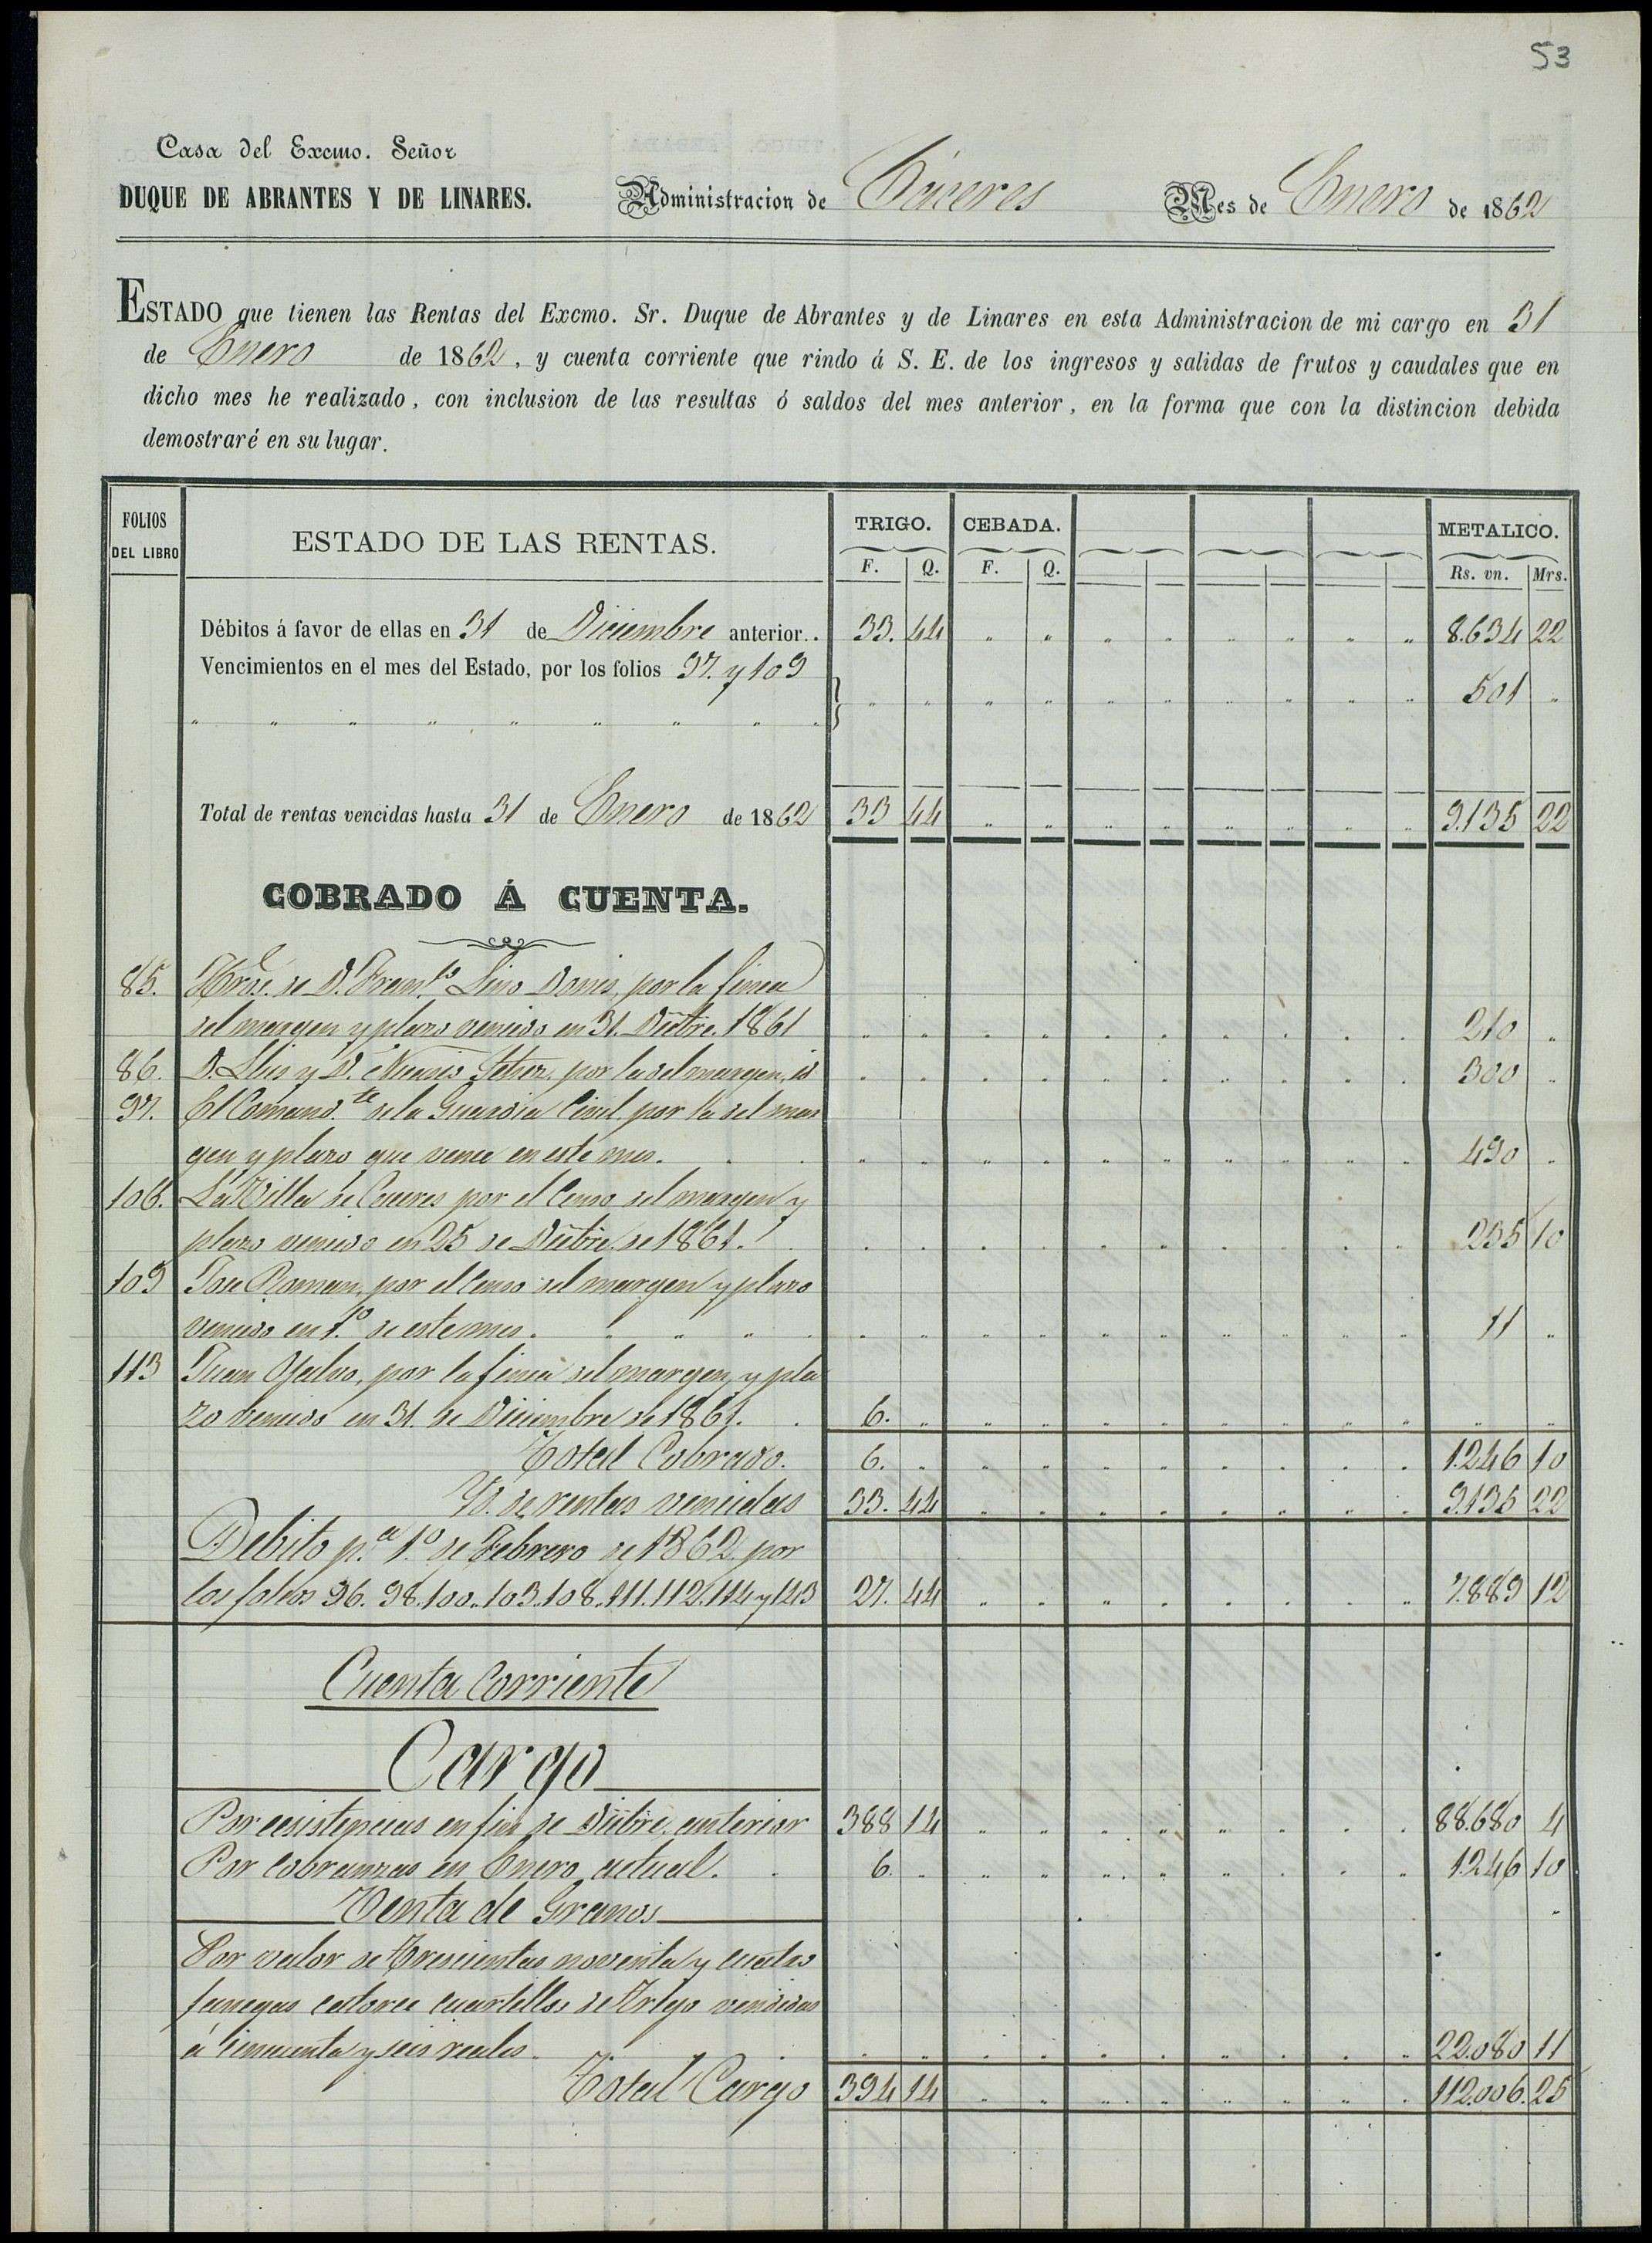 53
Casa del Excmo. Señor
DUQUE DE ABRANTES Y DE LINARES. Administracion de Cáceres Mes de Enero de 1862
ESTADO que tienen las Rentas del Excmo. Sr. Duque de Abrantes y de Linares en esta Administracion de mi cargo en 31
de Enero de 1862, y cuenta corriente que rindo á S. E. de los ingresos y salidas de frutos y caudales que en
dicho mes he realizado, con inclusion de las resultas ó saldos del mes anterior, en la forma que con la distincion debida
demostraré en su lugar.
FOLIOS DEL LIBRO ESTADO DE LAS RENTAS. TRIGO. CEBADA. METALICO.
F. Q. F. Q. Rs. vn. Mrs.
Débitos á favor de ellas en 31 de Diciembre anterior.. 33. 44 8.634 22
Vencimientos en el mes del Estado, por los folios 97. y 109
501 "
Total de rentas vencidas hasta 31 de Enero de 1862 33 44 9.135 22
COBRADO Á CUENTA.
85. de D. Lino por la finca
del margen y plazo vencido en 31. Dicbre. 1861 210 "
86. D. y D. por la del margen, id 300 "
97. El Comand.te de la Guardia Civil por la del mar
gen y plazo que vence en este mes. 490 "
106. La Villa de Cáceres por el Censo del margen y
plazo vencido en 25 de Dicbre. de 1861. 235 10
109 Jose Roman, por el Censo del margen y plazo
vencido en 1.º de este mes. 11 "
113 Juan por la finca del margen, y pla
zo vencido en 31. de Diciembre de 1861. 6. "
Total Cobrado. 6. " 1.246 10
Yd. de rentas vencidas 33. 44 9.135 22
Debito p.a 1.º de Febrero de 1862 por
los folios 96. 98. 100. 103. 108. 111. 112. 114 y 143 27. 44 7.889 12
Cuenta Corriente
Cargo
Por existencias en fin de Dicbre. anterior 388 14 88.680 4
Por cobranzas en Enero actual. 6. " 1.246 10
Venta de Granos
Por valor de Trescientas noventa y cuatro
fanegas catorce cuartillos de Trigo vendidas
á cincuenta y seis reales. 22.080 11
Total Cargo 394 14 112.006. 25